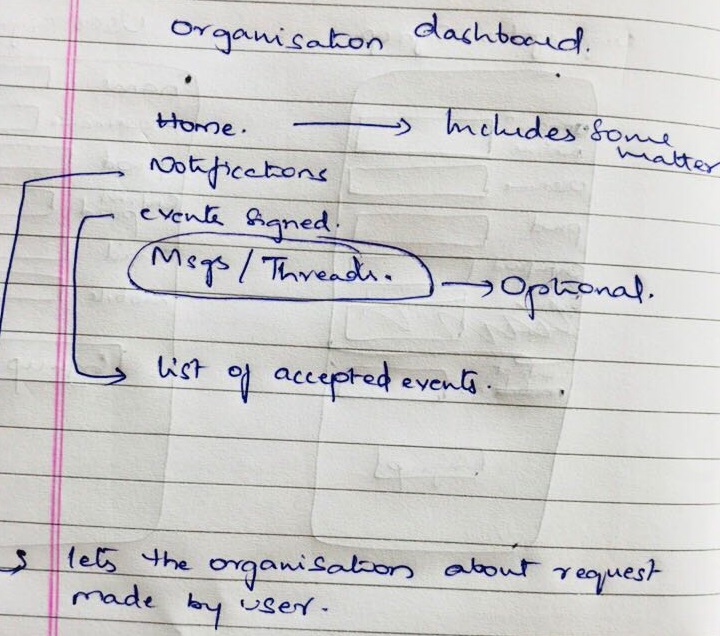 organisation dashboard.
Home. → Includes some matter
Notifications
events signed.
Msgs / Threads. → Optional.
list of accepted events.
lets the organisation about request
made by user.